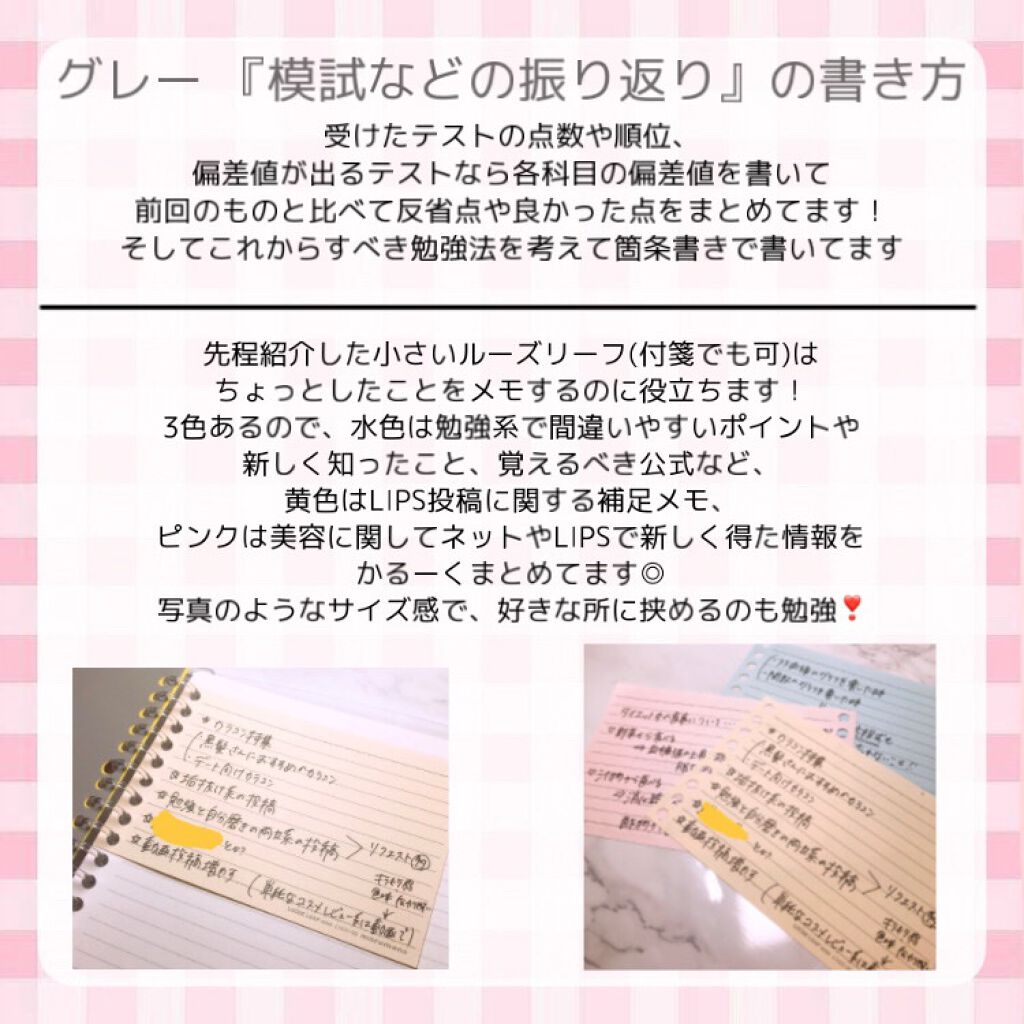 グレー『模試などの振り返り』の書き方
受けたテストの点数や順位、
偏差値が出るテストなら各科目の偏差値を書いて
前回のものと比べて反省点や良かった点をまとめてます!
そしてこれからすべき勉強法を考えて箇条書きで書いてます
先程紹介した小さいルーズリーフ(付箋でも可)は
ちょっとしたことをメモするのに役立ちます!
3色あるので、水色は勉強系で間違いやすいポイントや
新しく知ったこと、覚えるべき公式など、
黄色はLIPS投稿に関する補足メモ、
ピンクは美容に関してネットやLIPSで新しく得た情報を
かるーくまとめてます◎
写真のようなサイズ感で、好きな所に挟めるのも勉強❣
*カラコン特集
・黒髪さんにおすすめのカラコン
・デート向けカラコン
☆垢抜け系の投稿
☆勉強と自分磨きの両立系の投稿
リクエスト
とか?
☆動画投稿増やす
(単純なコスメレビュー系は動画で)
*カラコン特集
・黒髪さんにおすすめのカラコン
・デート向けカラコン
☆垢抜け系の投稿
☆勉強と自分磨きの両立系の投稿
リクエスト
とか?
☆動画投稿増やす